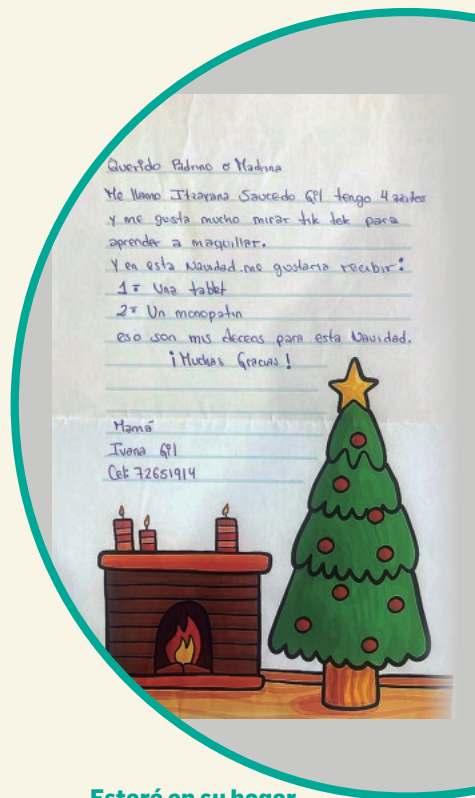 Querido Padrino o Madrina
Me llamo Itzayana Saucedo Gil tengo 4 añitos
y me gusta mucho mirar tik tok para
aprender a maquillar.
Y en esta Navidad me gustaria recibir:
1= Una tablet
2= Un monopatin
eso son mis deceos para esta Navidad.
¡Muchas Gracias!
Mamá
Ivana Gil
Cel: 72651914
Estaré en su hogar